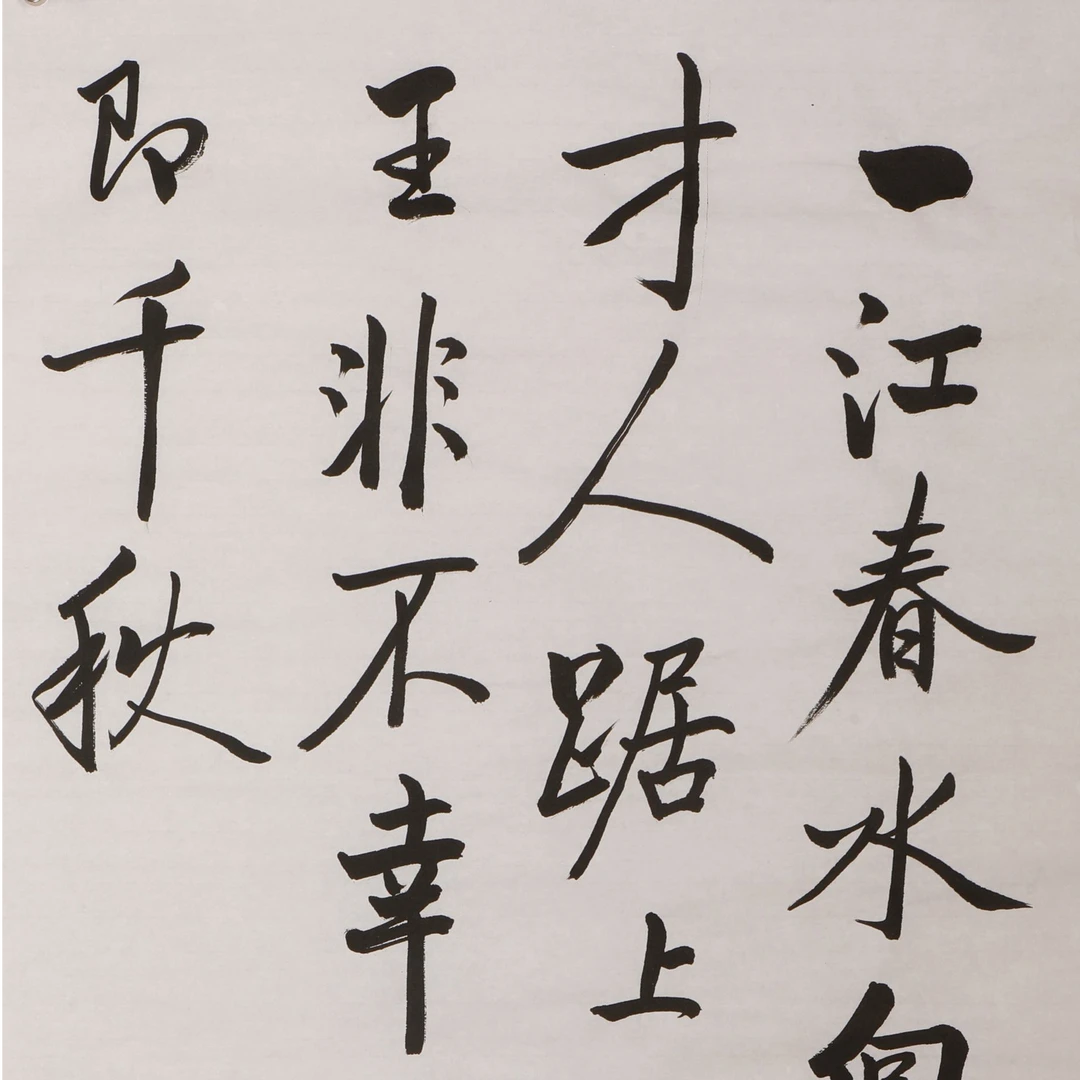 一江春水向
才人踞上
王非不幸
即千秋